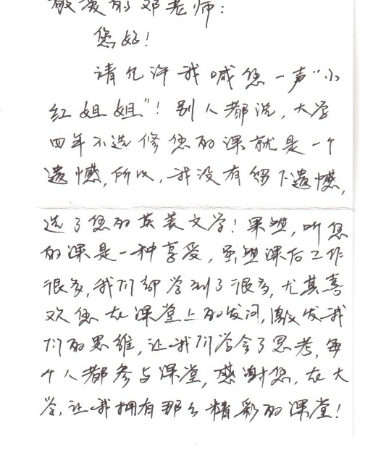 敬爱的邓老师:
您好!
请允许我喊您一声"小
红姐姐"!别人都说,大学
四年不选修您的课就是一个
遗憾,所以,我没有留下遗憾,
选了您的英美文学!果然,听您
的课是一种享受,虽然课后工作
很多,我们却学到了很多,尤其喜
欢您在课堂上的发问,激发我
们的思维,让我们学会了思考,每
个人都参与课堂,感谢您,在大
学,让我拥有那么精彩的课堂!